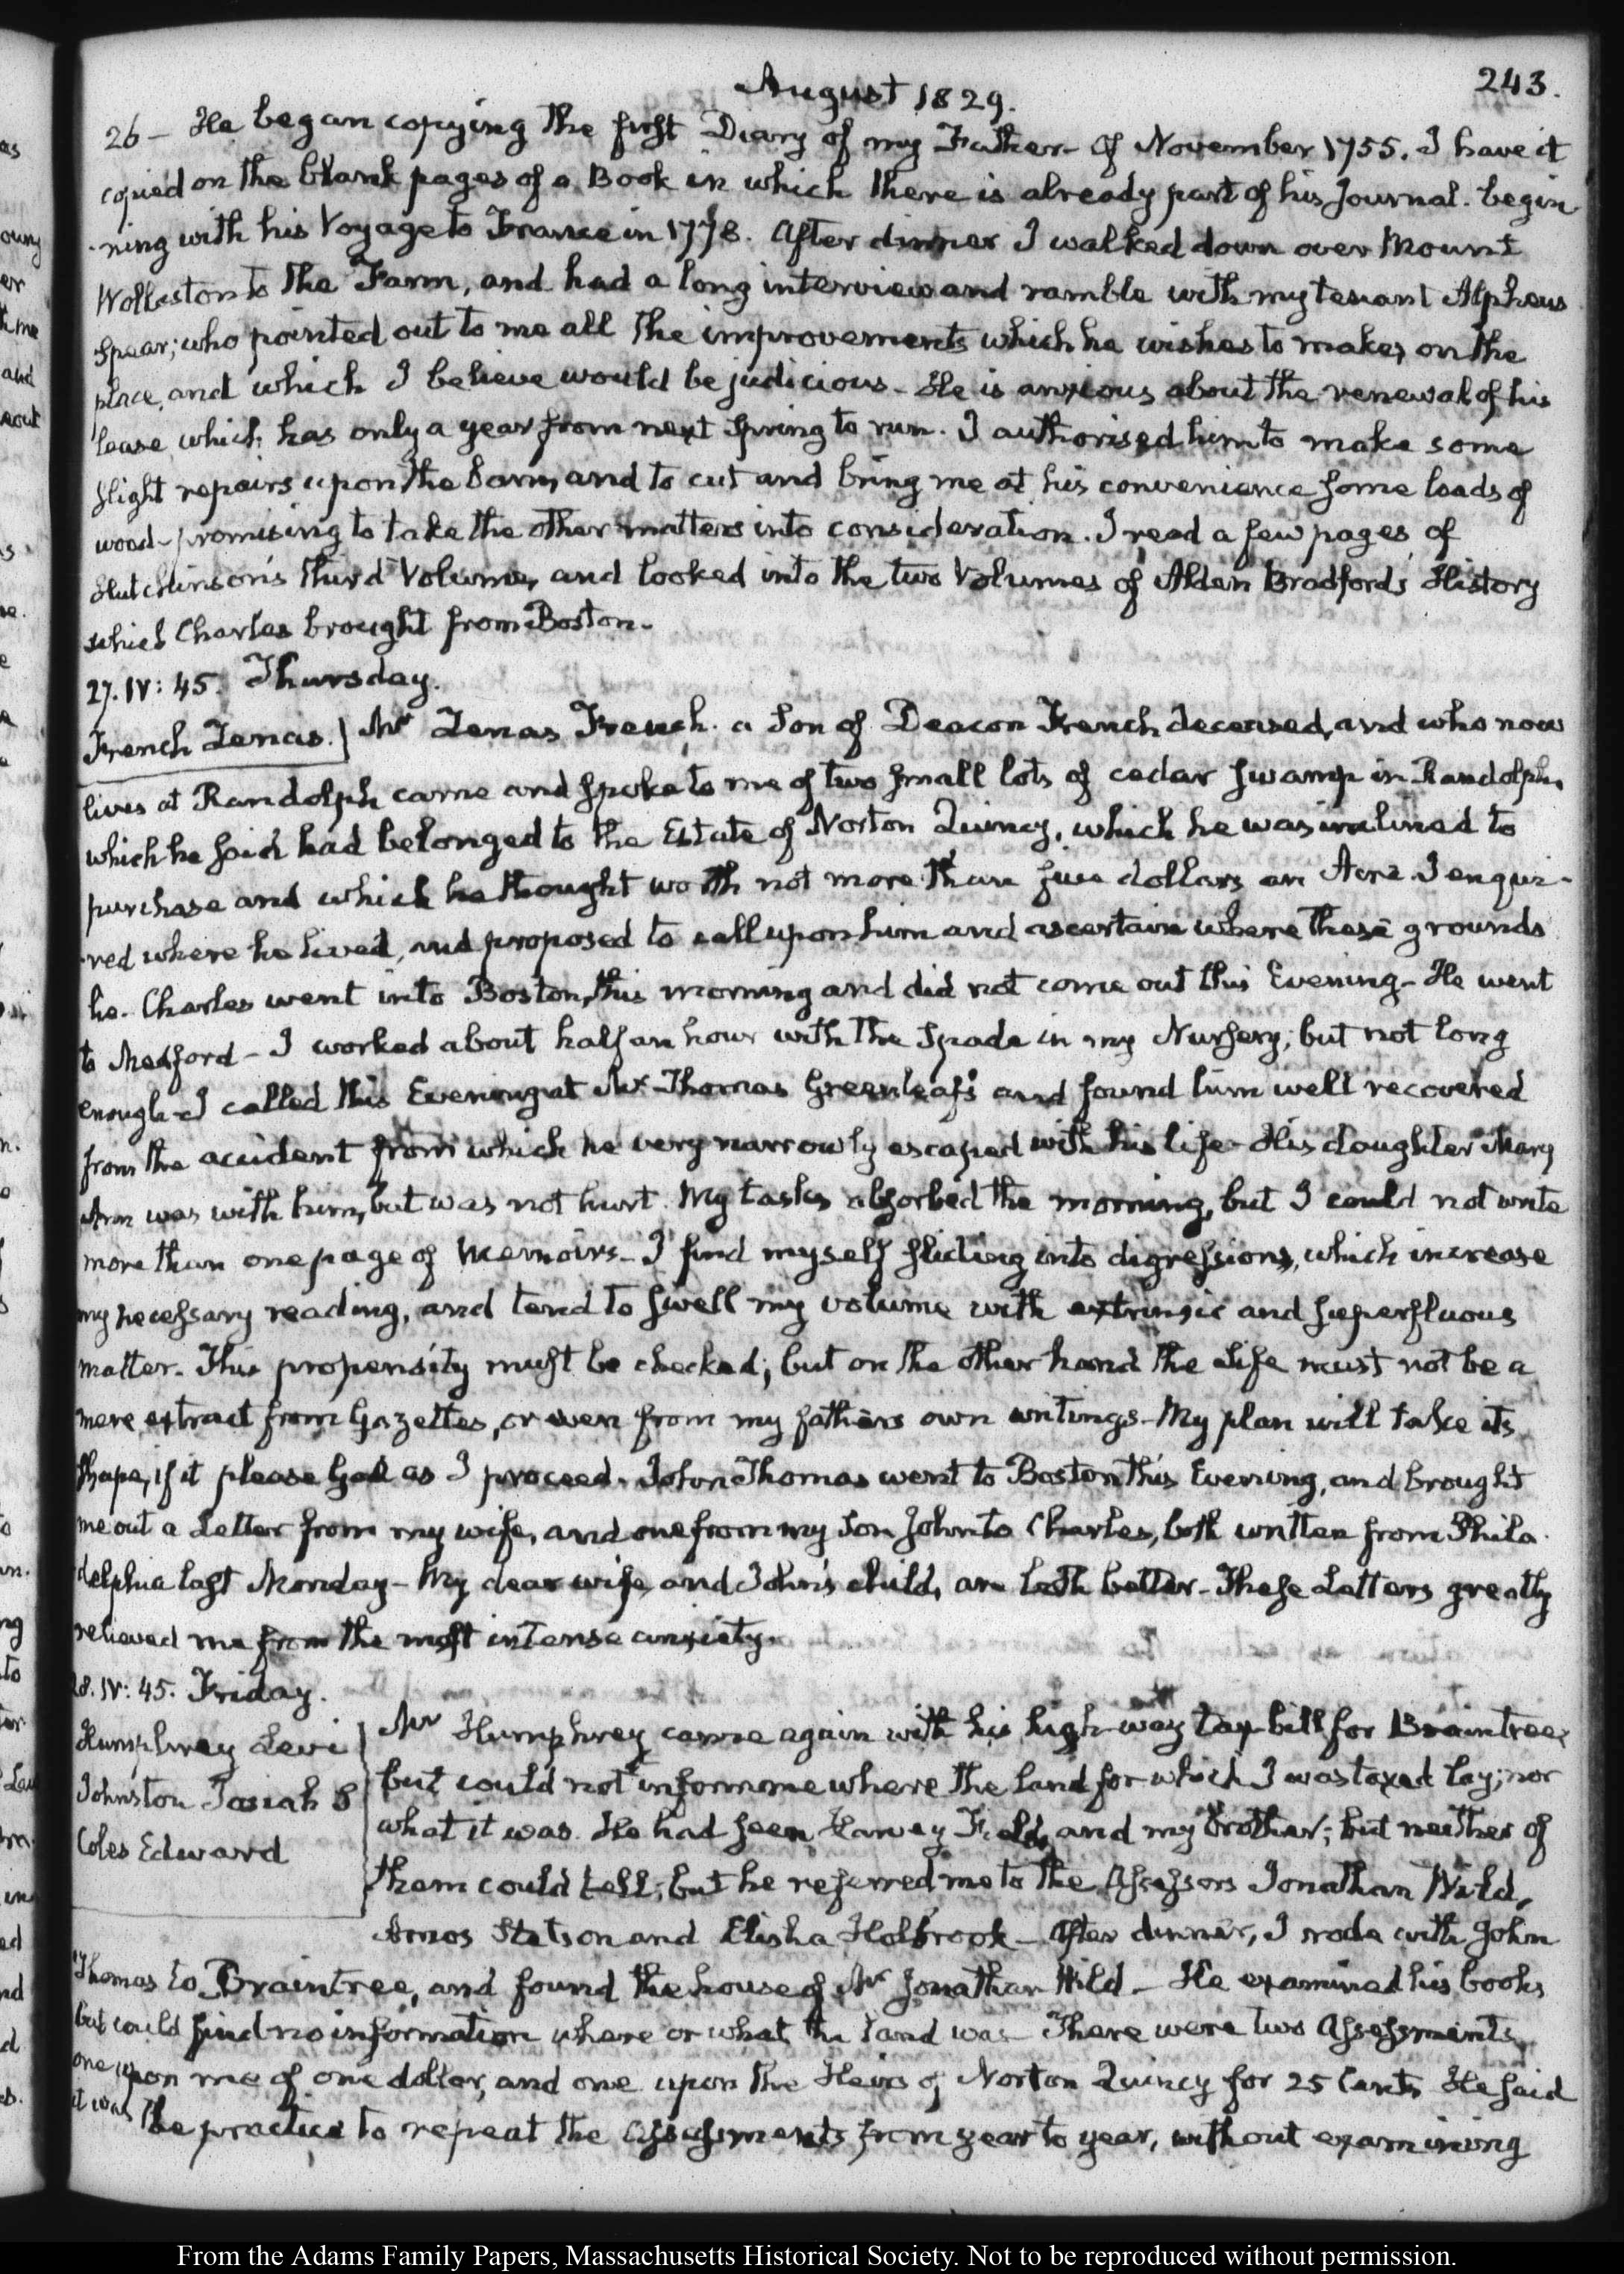 243.
August 1829.
26 – He began copying the first Diary of my Father – of November 1755. I have it
copied on the blank pages of a Book in which there is already part of his Journal. begin
-ning with his Voyage to France in 1778. After dinner I walked down over Mount
Wollaston to the Farm, and had a long interview and ramble with my tenant Alpheus
Spear; who pointed out to me all the improvements which he wishes to make, on the
place, and which I believe would be judicious – He is anxious about the renewal of his
lease, which has only a year from next Spring to run. I authorised him to make some
slight repairs upon the barn, and to cut and bring me at his convenience some loads of
wood – promising to take the other matters into consideration. I read a few pages of
Hutchinson's third Volume, and looked into the two Volumes of Alden Bradford's History
which Charles brought from Boston.
27. IV: 45. Thursday.
French Zenas. Mr Zenas French. a Son of Deacon French deceased, and who now
lives at Randolph came and spoke to me of two small lots of cedar swamp in Randolph,
which he said had belonged to the Estate of Norton Quincy, which he was inclined to
purchase and which he thought worth not more than five dollars an Acre. I enqui-
-red where he lived, and proposed to call upon him and ascertain where these grounds
lie. Charles went into Boston, this morning and did not come out this Evening – He went
to Medford – I worked about half an hour with the Spade in my Nursery; but not long
enough – I called this Evening at Mr Thomas Greenleaf's and found him well recovered
from the accident from which he very narrowly escaped with his life – His daughter Mary
Ann was with him, but was not hurt. My tasks absorbed the morning, but I could not write
more than one page of Memoirs – I find myself sliding into digressions, which increase
my necessary reading, and tend to swell my volume with extrinsic and superfluous
matter. This propensity must be checked; but on the other hand the Life must not be a
mere extract from Gazettes, or even from my father's own writings – My plan will take its
shape, if it please God as I proceed. John Thomas went to Boston this Evening, and brought
me out a Letter from my wife, and one from my Son John to Charles, both written from Phila-
delphia last Monday – My dear wife, and John's child, are both better – These Letters greatly
relieved me from the most intense anxiety.
28. IV: 45. Friday.
Humphrey Levi
Johnston Josiah S
Coles Edward
Mr Humphrey came again with his high-way tax-bill for Braintree,
but could not inform me where the land for which I was taxed lay; nor
what it was. He had seen Harvey Field, and my brother; but neither of
them could tell; but he referred me to the Assessors Jonathan Wild,
Amos Stetson and Elisha Holbrook – After dinner, I rode with John
Thomas to Braintree, and found the house of Mr Jonathan Wild – He examined his books
but could find no information where or what the land was – There were two Assessments,
one upon me of one dollar, and one upon the Heirs of Norton Quincy for 25 Cents He said
it was the practice to repeat the Assessments from year to year, without examining
From the Adams Family Papers, Massachusetts Historical Society. Not to be reproduced without permission.